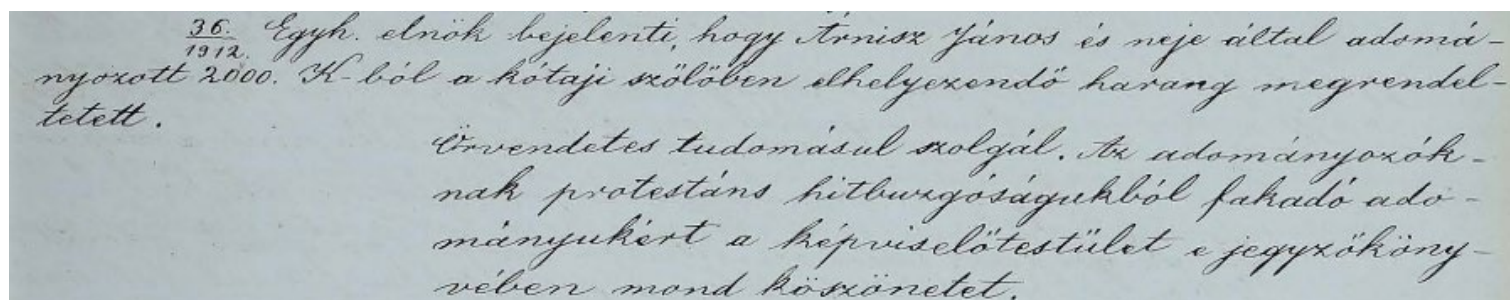 36. Egyh. elnök bejelenti, hogy Árnisz János és neje által adomá-
1912.
nyozott 2000. K-ból a kótaji szölöben elhelyezendő harang megrendel-
tetett.
Örvendetes tudomásul szolgál. Az adományozók-
nak protestáns hitbuzgóságukból fakadó ado-
mányukért a képviselőtestület e jegyzőköny-
vében mond köszönetet.